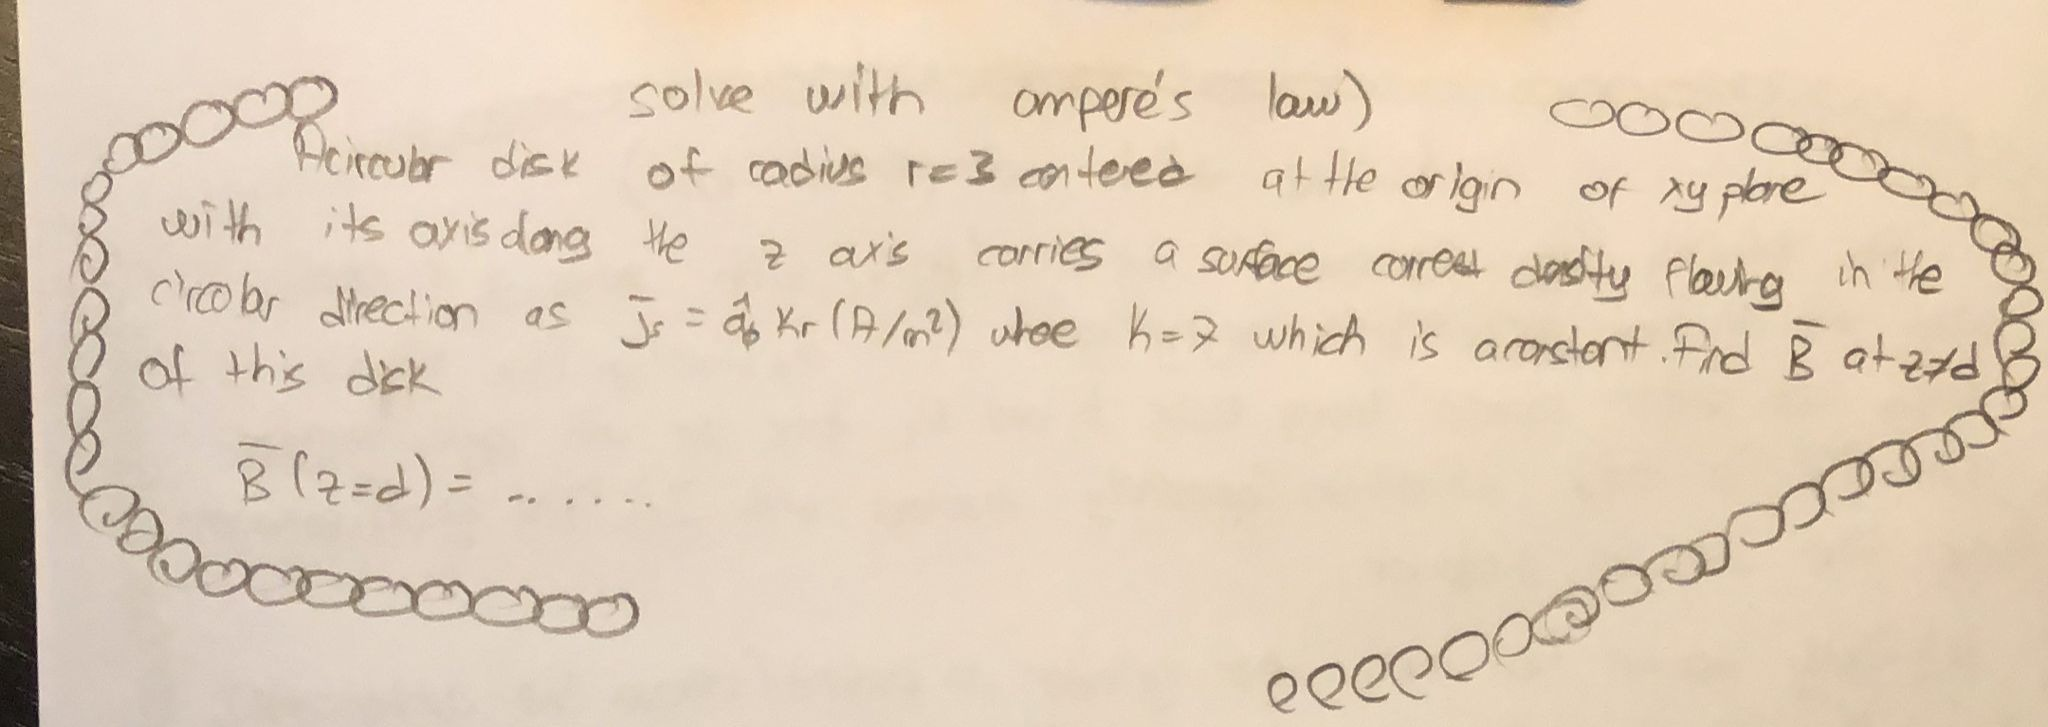 solve with ampere's law)
A circular disk of radius r=3 centered at the origin of xy plane
with its axis along the z axis carries a surface current density flowing in the
circular direction as J̄s = âϕ Kr (A/m²) where K=7 which is a constant. Find B̄ at z=d
of this disk
B̄ (z=d) = .. . . . ..